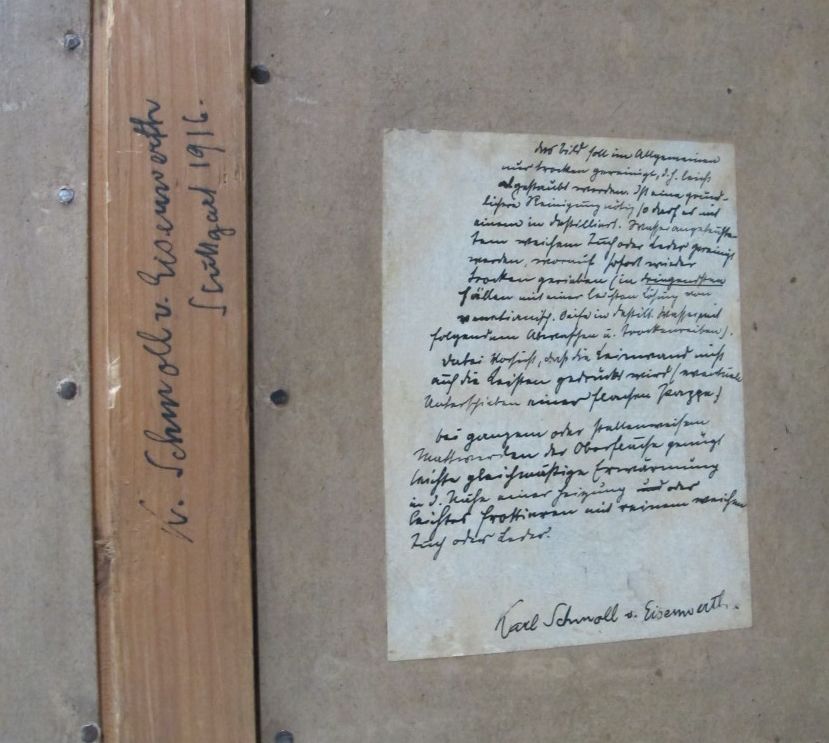 K. Schmoll v. Eisenwerth
Stuttgart 1916.
Das Bild soll im Allgemeinen
nur trocken gereinigt, d.h. leicht
abgestaubt werden. Ist eine gründ-
lichere Reinigung nötig so darf es mit
einem in destilliert. Wasser angefeuchte-
tem weichem Tuch oder Leder gereinigt
werden, worauf sofort wieder
trocken gerieben (in dringendsten
Fällen mit einer leichten Lösung von
venetianisch. Seife in destill. Wasser mit
folgendem Abwaschen u. Trockenreiben).
Dabei Vorsicht, daß die Leinwand nicht
auf die Leisten gedrückt wird (eventuel
Unterschieben einer flachen Pappe)
bei ganzem oder stellenweisem
Mattwerden der Oberfläche genügt
leichte gleichmäßige Erwärmung
in d. Nähe einer Heizung und oder
leichtes Frottieren mit reinem weichen
Tuch oder Leder.
Karl Schmoll v. Eisenwerth.